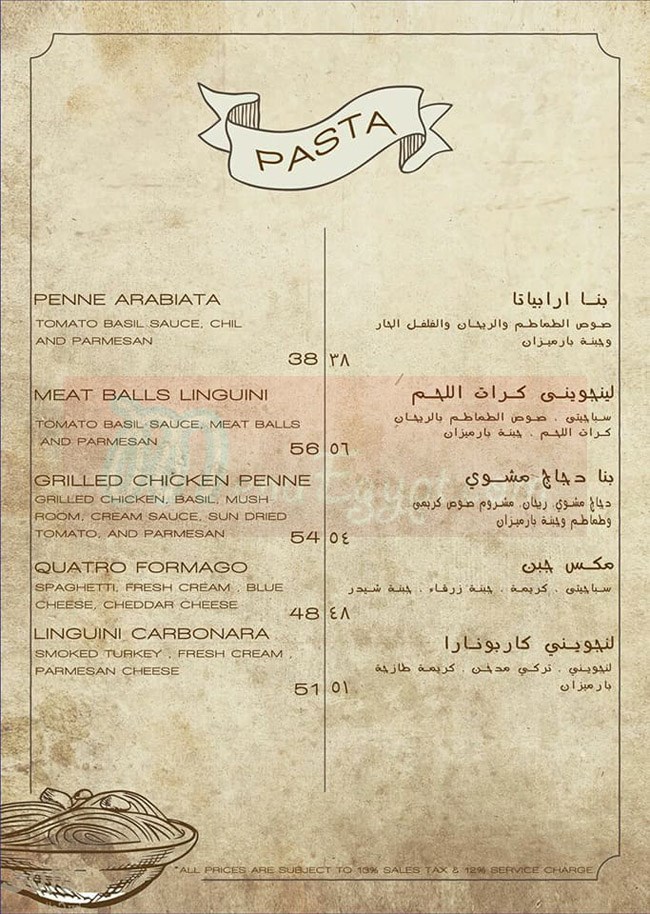 PASTA
PENNE ARABIATA
TOMATO BASIL SAUCE, CHIL
AND PARMESAN
38 ٣٨
بنا ارابياتا
صوص الطماطم والريحان والفلفل الحار
وجبنة بارميزان
MEAT BALLS LINGUINI
TOMATO BASIL SAUCE, MEAT BALLS
AND PARMESAN
56 ٥٦
لينجوينى كرات اللحم
سباجيتى . صوص الطماطم بالريحان
كرات اللحم . جبنة بارميزان
GRILLED CHICKEN PENNE
GRILLED CHICKEN, BASIL, MUSH
ROOM, CREAM SAUCE, SUN DRIED
TOMATO, AND PARMESAN
54 ٥٤
بنا دجاج مشوي
دجاج مشوي. ريحان. مشروم صوص كريمى
وطماطم وجبنة بارميزان
QUATRO FORMAGO
SPAGHETTI, FRESH CREAM , BLUE
CHEESE, CHEDDAR CHEESE
48 ٤٨
مكس جبن
سباجيتى . كريمة . جبنة زرقاء . جبنة شيدر
LINGUINI CARBONARA
SMOKED TURKEY , FRESH CREAM ,
PARMESAN CHEESE
51 ٥١
لنجويني كاربونارا
لنجويني . تركي مدخن . كريمة طازجة
بارميزان
*ALL PRICES ARE SUBJECT TO 13% SALES TAX & 12% SERVICE CHARGE